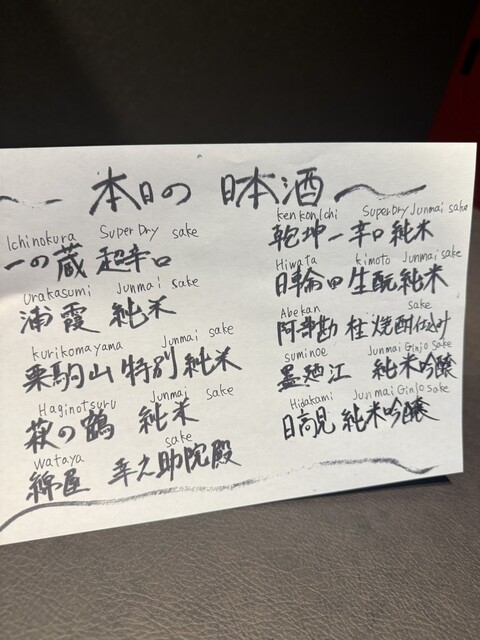 〜 本日の 日本酒 〜
Ichinokura Super Dry sake
一の蔵 超辛口
Urakasumi Junmai sake
浦霞 純米
kurikomayama Junmai sake
栗駒山 特別純米
Haginotsuru Junmai sake
萩の鶴 純米
Wataya sake
綿屋 幸之助院殿
kenkonIchi SuperDry Junmai sake
乾坤一 辛口 純米
Hiwata kimoto Junmai sake
日輪田 生酛純米
Abekan sake
阿部勘 焼酎仕込み
suminoe Junmai Ginjo Sake
墨廼江 純米吟醸
Hidakami Junmai Ginjo Sake
日高見 純米吟醸